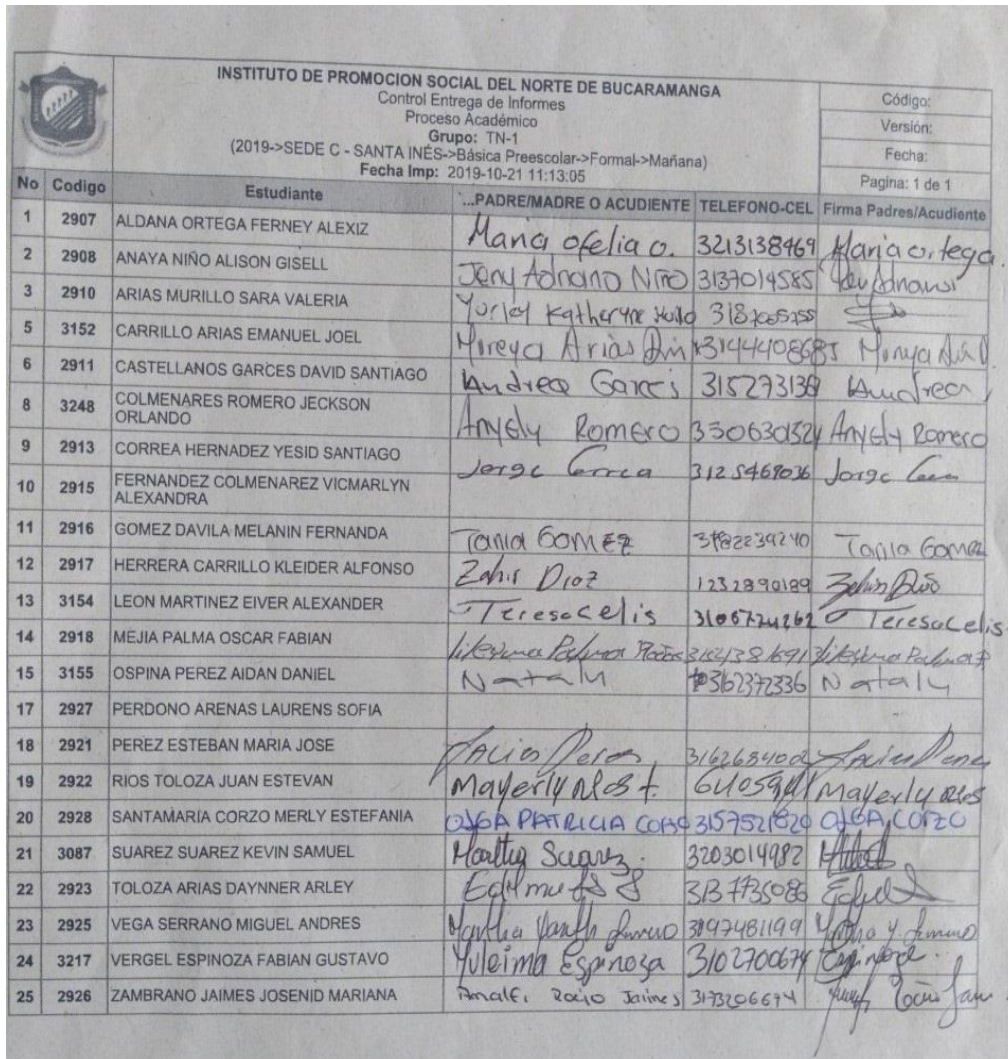 INSTITUTO DE PROMOCION SOCIAL DEL NORTE DE BUCARAMANGA
Control Entrega de Informes
Proceso Académico
Grupo: TN-1
(2019->SEDE C - SANTA INÉS->Básica Preescolar->Formal->Mañana)
Fecha Imp: 2019-10-21 11:13:05
Código:
Versión:
Fecha:
Pagina: 1 de 1
No Codigo Estudiante ...PADRE/MADRE O ACUDIENTE TELEFONO-CEL Firma Padres/Acudiente
1 2907 ALDANA ORTEGA FERNEY ALEXIZ Maria ofelia o. 3213138469 Maria ortega.
2 2908 ANAYA NIÑO ALISON GISELL Jeny Adriano Niño 3137014585
3 2910 ARIAS MURILLO SARA VALERIA Yurley Katheryne
5 3152 CARRILLO ARIAS EMANUEL JOEL Mireya Arias
6 2911 CASTELLANOS GARCES DAVID SANTIAGO Andrea Garces Andrea
8 3248 COLMENARES ROMERO JECKSON
ORLANDO Anyely Romero Anyely Romero
9 2913 CORREA HERNADEZ YESID SANTIAGO Jorge Correa 3125469036 Jorge
10 2915 FERNANDEZ COLMENAREZ VICMARLYN
ALEXANDRA
11 2916 GOMEZ DAVILA MELANIN FERNANDA Tania Gomez 3182239240 Tania Gomez
12 2917 HERRERA CARRILLO KLEIDER ALFONSO Zahir Diaz 1232890189
13 3154 LEON MARTINEZ EIVER ALEXANDER Teresa celis Teresa celis
14 2918 MEJIA PALMA OSCAR FABIAN Palma
15 3155 OSPINA PEREZ AIDAN DANIEL Nataly 3162372336 Nataly
17 2927 PERDONO ARENAS LAURENS SOFIA
18 2921 PEREZ ESTEBAN MARIA JOSE
19 2922 RIOS TOLOZA JUAN ESTEVAN Mayerly Mayerly
20 2928 SANTAMARIA CORZO MERLY ESTEFANIA OLGA PATRICIA 3157521820 OLGA CORZO
21 3087 SUAREZ SUAREZ KEVIN SAMUEL Martha Suarez. 3203014982
22 2923 TOLOZA ARIAS DAYNNER ARLEY 3137735086
23 2925 VEGA SERRANO MIGUEL ANDRES Martha
24 3217 VERGEL ESPINOZA FABIAN GUSTAVO Yuleima Espinoza 3102700674
25 2926 ZAMBRANO JAIMES JOSENID MARIANA Amalfi Rocio Jaimes 3173206694